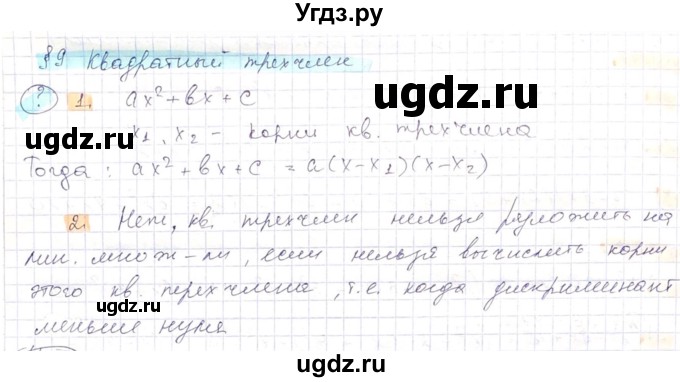 Угдз.ру
§9 Квадратный трехчлен
ugdz.ru
? 1. ax² + bx + c
ugdz.ru
x₁, x₂ - корни кв. трехчлена
Тогда: ax² + bx + c = a(x-x₁)(x-x₂)
2. Нет, кв. трехчлен нельзя разложить на
ugdz.ru
лин. множ-ли, если нельзя вычислить корни
этого кв. трехчлена, т.е. когда дискриминант
меньше нуля
ugdz.ru
ugdz.ru